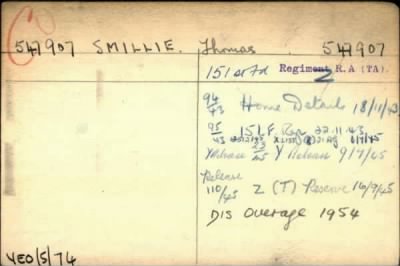 Co
547907 SMILLIE. Thomas 547907
151st Fd Regiment R.A (TA).
94/43 Home Details 18/11/43
95/43 151 F. Reg 22.11.43
Release Y Release 9/7/45
Release
110/45 Z (T) Reserve 16/9/45
DIS Overage 1954
YEO/5/74